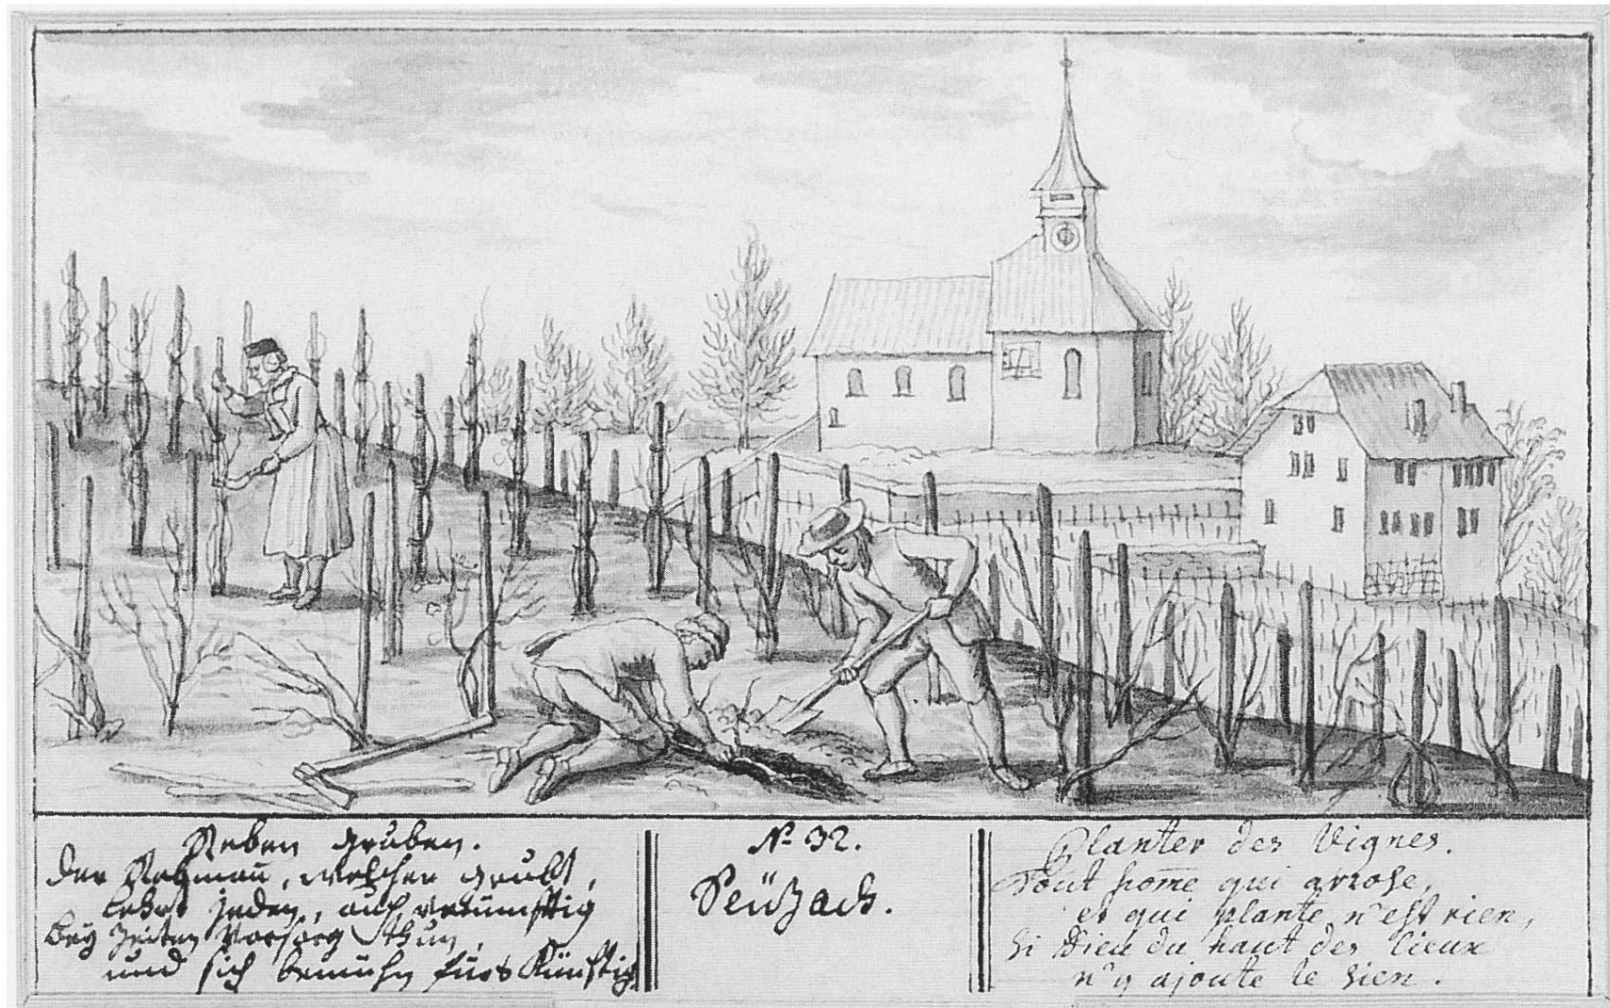 Reben gruben.
Der Rebmañ, welcher grubt,
lehrt jeden, auch vernünftig
Bey Zeiten Vorsorg thun,
und sich bemühn fürs Künftig
No 32.
Seüzach.
Planter des Vignes.
Tout hom̃e qui arrose,
et qui plante n'est rien,
Si Dieu du haut des Cieux
n'y ajoute le sien.